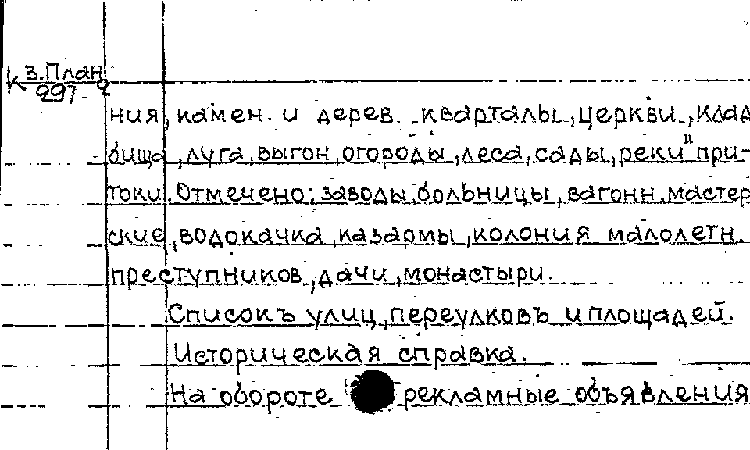 К з.План
297 2
ния, камен. и дерев. кварталы, церкви, клад
бища, луга, выгон, огороды, леса, сады, реки и при-
токи. Отмечено: заводы, больницы, вагонн. мастер
ские, водокачка, казармы, колония малолетн.
преступников, дачи, монастыри.
Списокъ улиц, переулковъ и площадей.
Историческая справка.
На обороте рекламные объявления